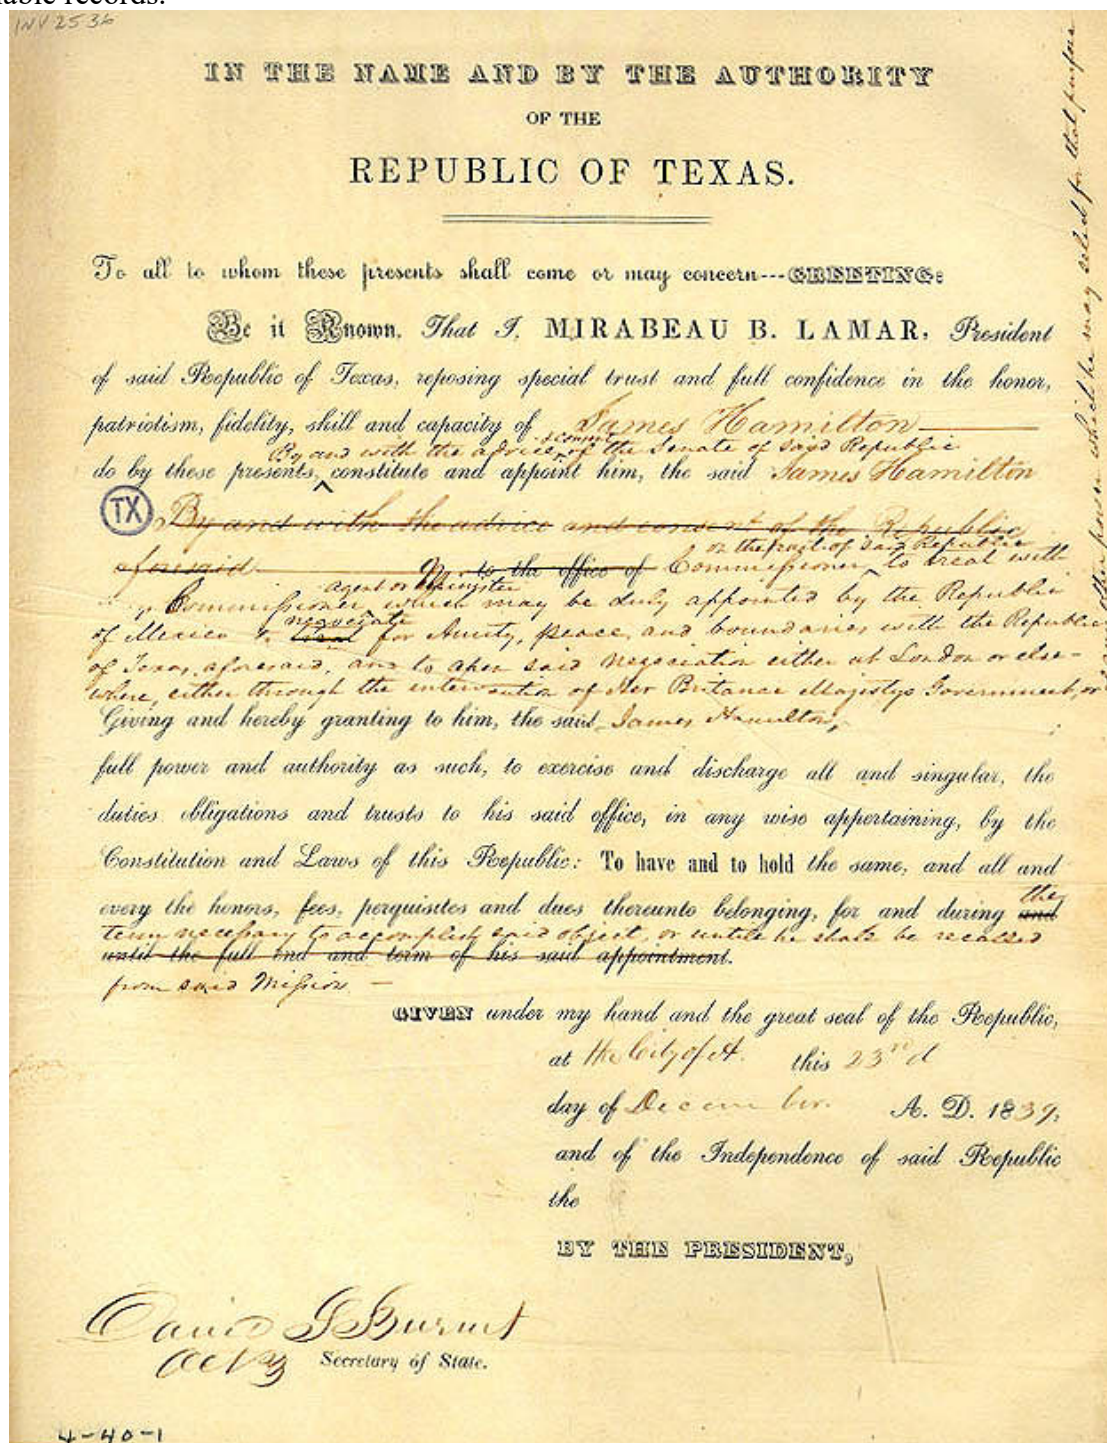 nable records.
INV 2536
IN THE NAME AND BY THE AUTHORITY
OF THE
REPUBLIC OF TEXAS.
To all to whom these presents shall come or may concern---GREETING:
Be it Known, That I, MIRABEAU B. LAMAR, President
of said Republic of Texas, reposing special trust and full confidence in the honor,
patriotism, fidelity, skill and capacity of James Hamilton
By and with the advice & consent of the Senate of said Republic
do by these presents, constitute and appoint him, the said James Hamilton
TX
By and with the advice and consent of the Republic
on the part of said Republic
aforesaid to the office of Commissioner to treat with
agent or Minister
Commissioner which may be duly appointed by the Republic
negociate
of Mexico to treat for Amity, peace, and boundaries with the Republic
of Texas, aforesaid, and to open said negociation either at London or else-
where, either through the intervention of Her Britanic Majestys Government, or
some other power which he may select for that purpose
Giving and hereby granting to him, the said James Hamilton,
full power and authority as such, to exercise and discharge all and singular, the
duties obligations and trusts to his said office, in any wise appertaining, by the
Constitution and Laws of this Republic: To have and to hold the same, and all and
every the honors, fees, perquisites and dues thereunto belonging, for and during and the
term necessary to accomplish said object, or untill he shall be recalled
until the full end and term of his said appointment.
from said Mission
GIVEN under my hand and the great seal of the Republic,
at the City of A. this 23rd
day of December A. D. 1839,
and of the Independence of said Republic
the
BY THE PRESIDENT,
David G Burnet
Acting Secretary of State.
4-40-1